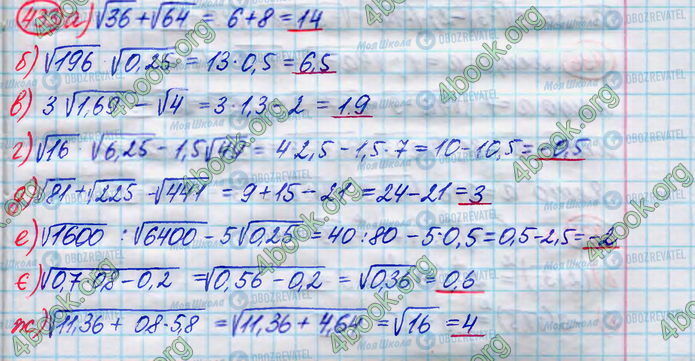 433 а) √36 + √64 = 6 + 8 = 14
б) √196 · √0,25 = 13 · 0,5 = 6,5
в) 3√1,69 − √4 = 3 · 1,3 − 2 = 1.9
г) √16 · √6,25 − 1,5√49 = 4 2,5 − 1,5 · 7 = 10 − 10,5 = −0,5
д) √81 + √225 − √441 = 9 + 15 − 21 = 24 − 21 = 3
е) √1600 : √6400 − 5√0,25 = 40 : 80 − 5 · 0,5 = 0,5 − 2,5 = −2
є) √0,7 · 0,8 − 0,2 = √0,56 − 0,2 = √0,36 = 0,6
ж) √11,36 + 0,8 · 5,8 = √11,36 + 4,64 = √16 = 4